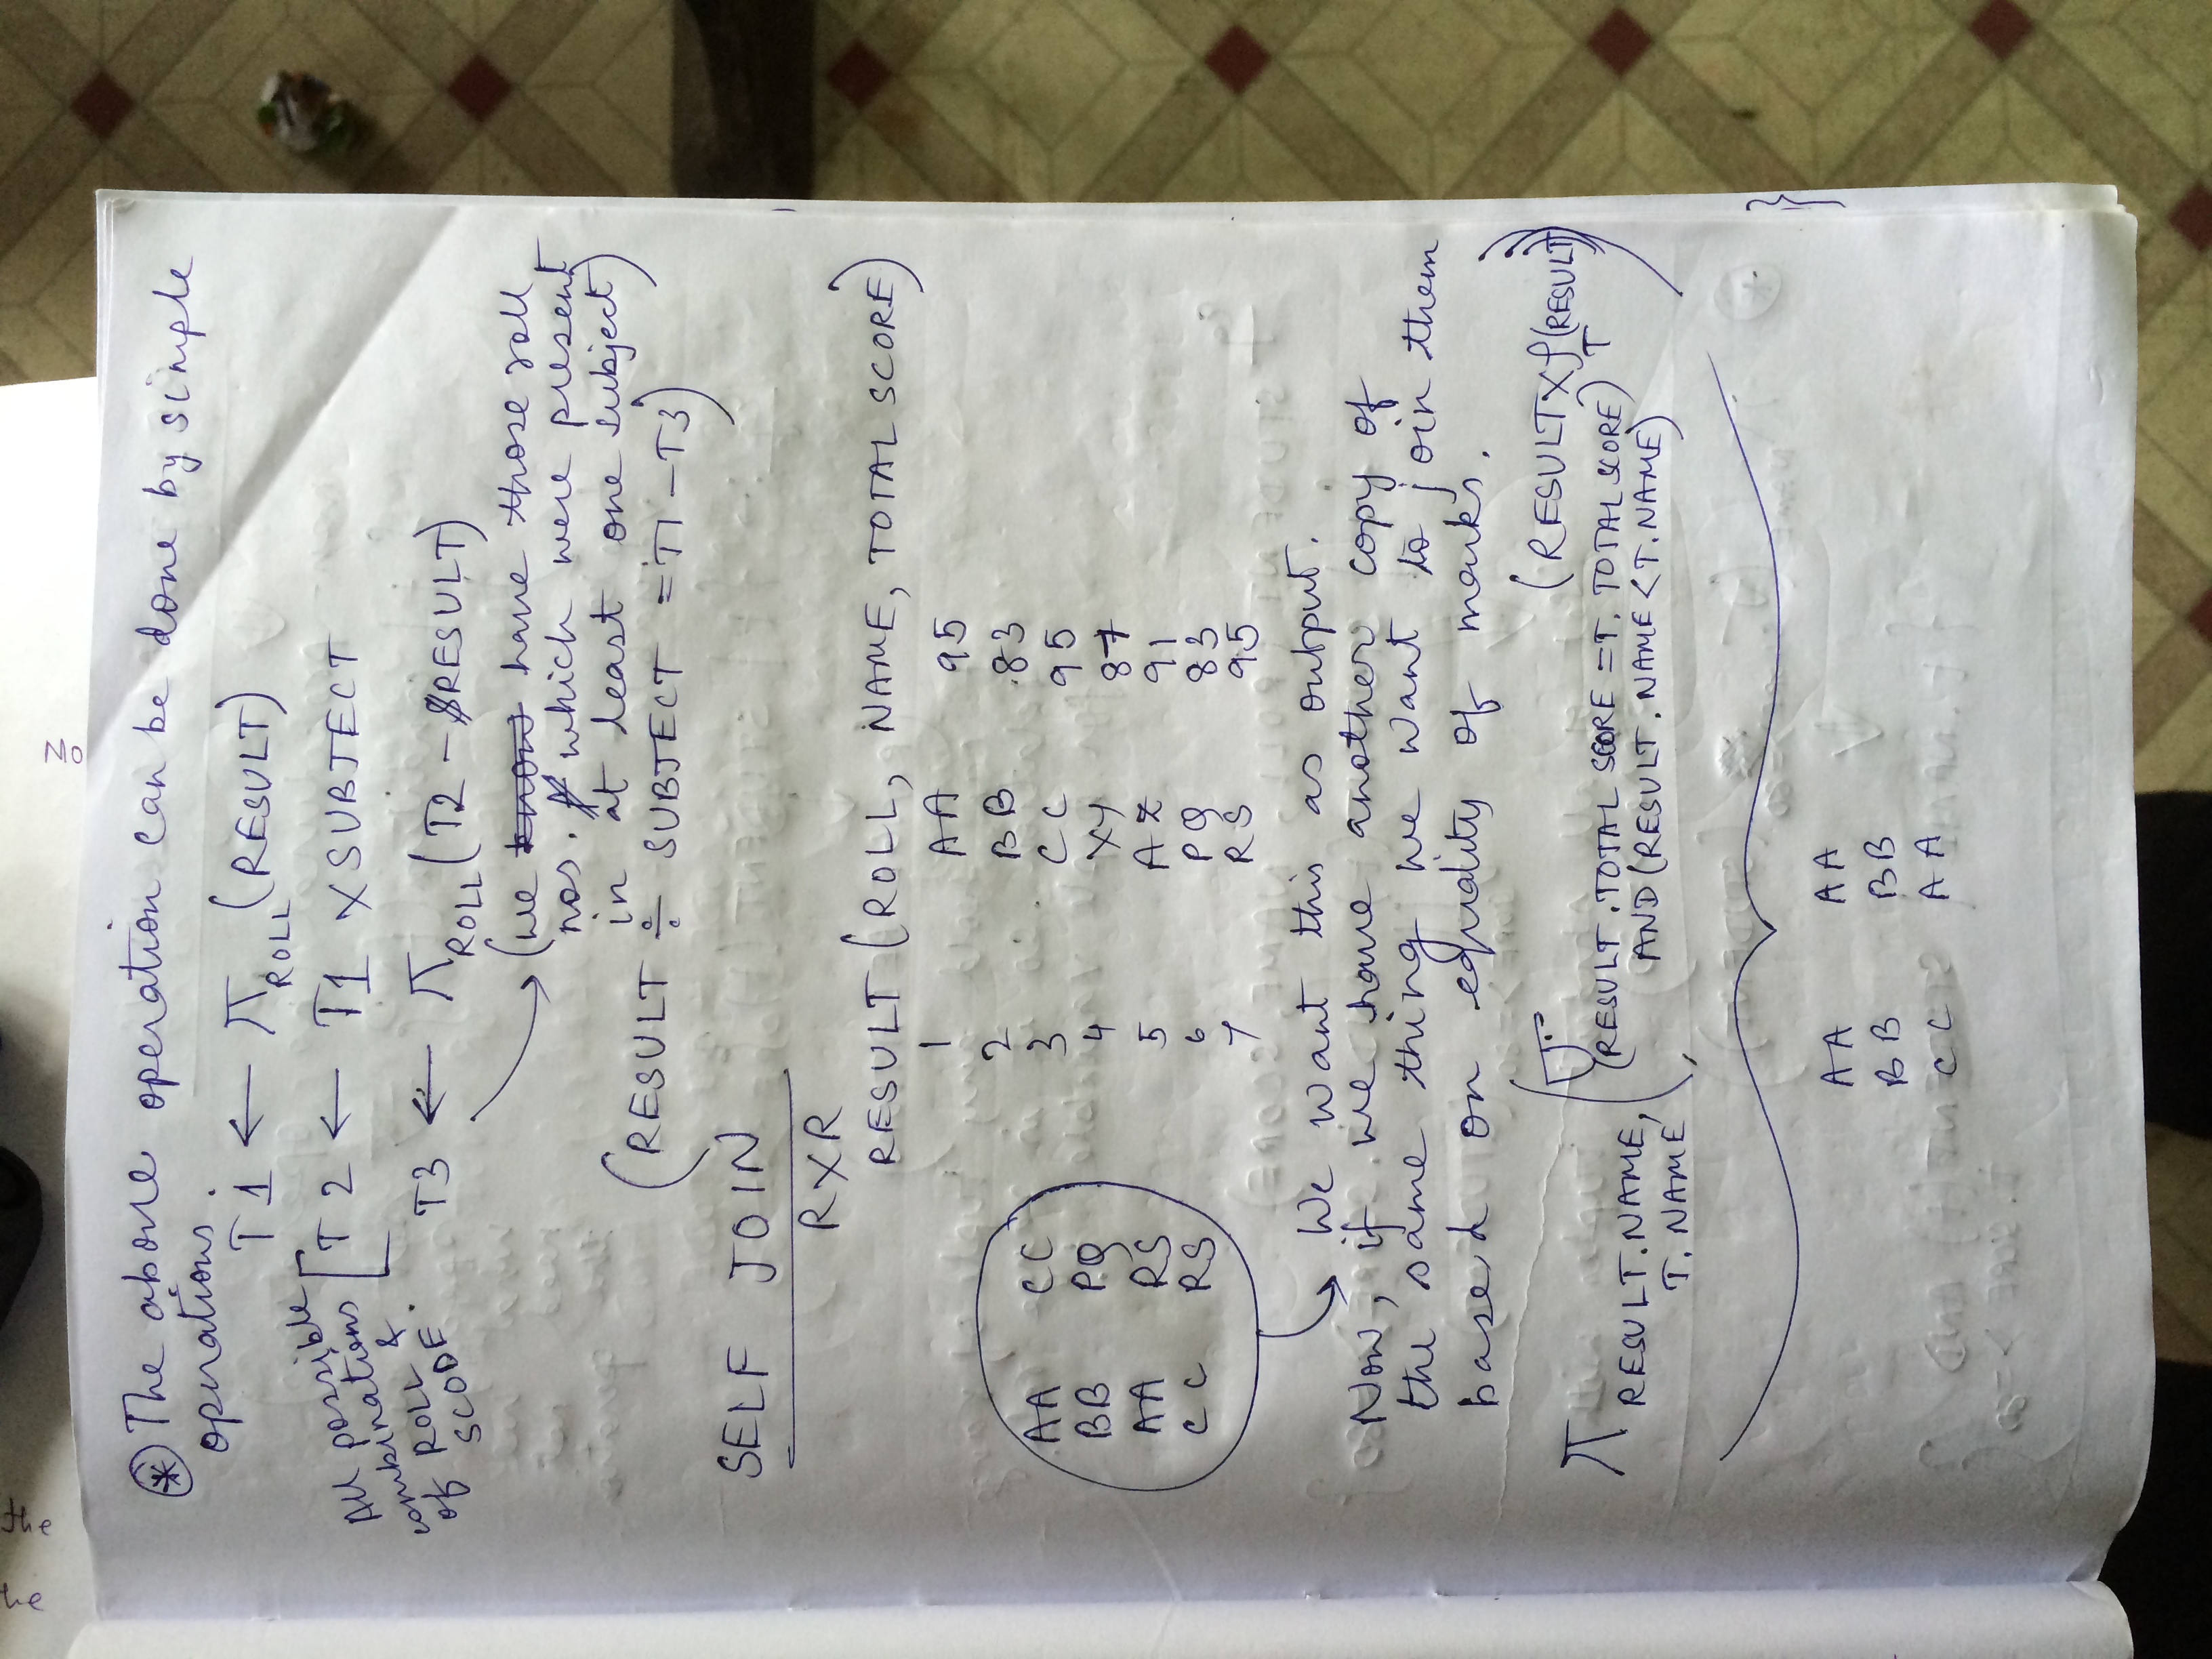 the
the
No
⊛ The above operation can be done by simple
operations.
T1 ← π ROLL (RESULT)
All possible
combinations
of ROLL &
SCODE.
[ T2 ← T1 X SUBJECT
T3 ← π ROLL (T2 - RESULT)
(we know have those roll
nos. which were present
in at least one subject)
(RESULT ÷ SUBJECT = T1 - T3)
SELF JOIN
RXR
RESULT (ROLL, NAME, TOTAL SCORE)
1 AA 95
2 BB 83
3 CC 95
4 XY 87
5 AZ 91
6 PQ 83
7 RS 95
AA CC
BB PQ
AA RS
CC RS
We want this as output.
Now, if we have another copy of
the same thing we want to join them
based on equality of marks.
π RESULT.NAME, T.NAME ( σ (RESULT.TOTAL SCORE = T.TOTAL SCORE) AND (RESULT.NAME < T.NAME) (RESULT X ρ T (RESULT)))
AA AA
BB BB
CC AA